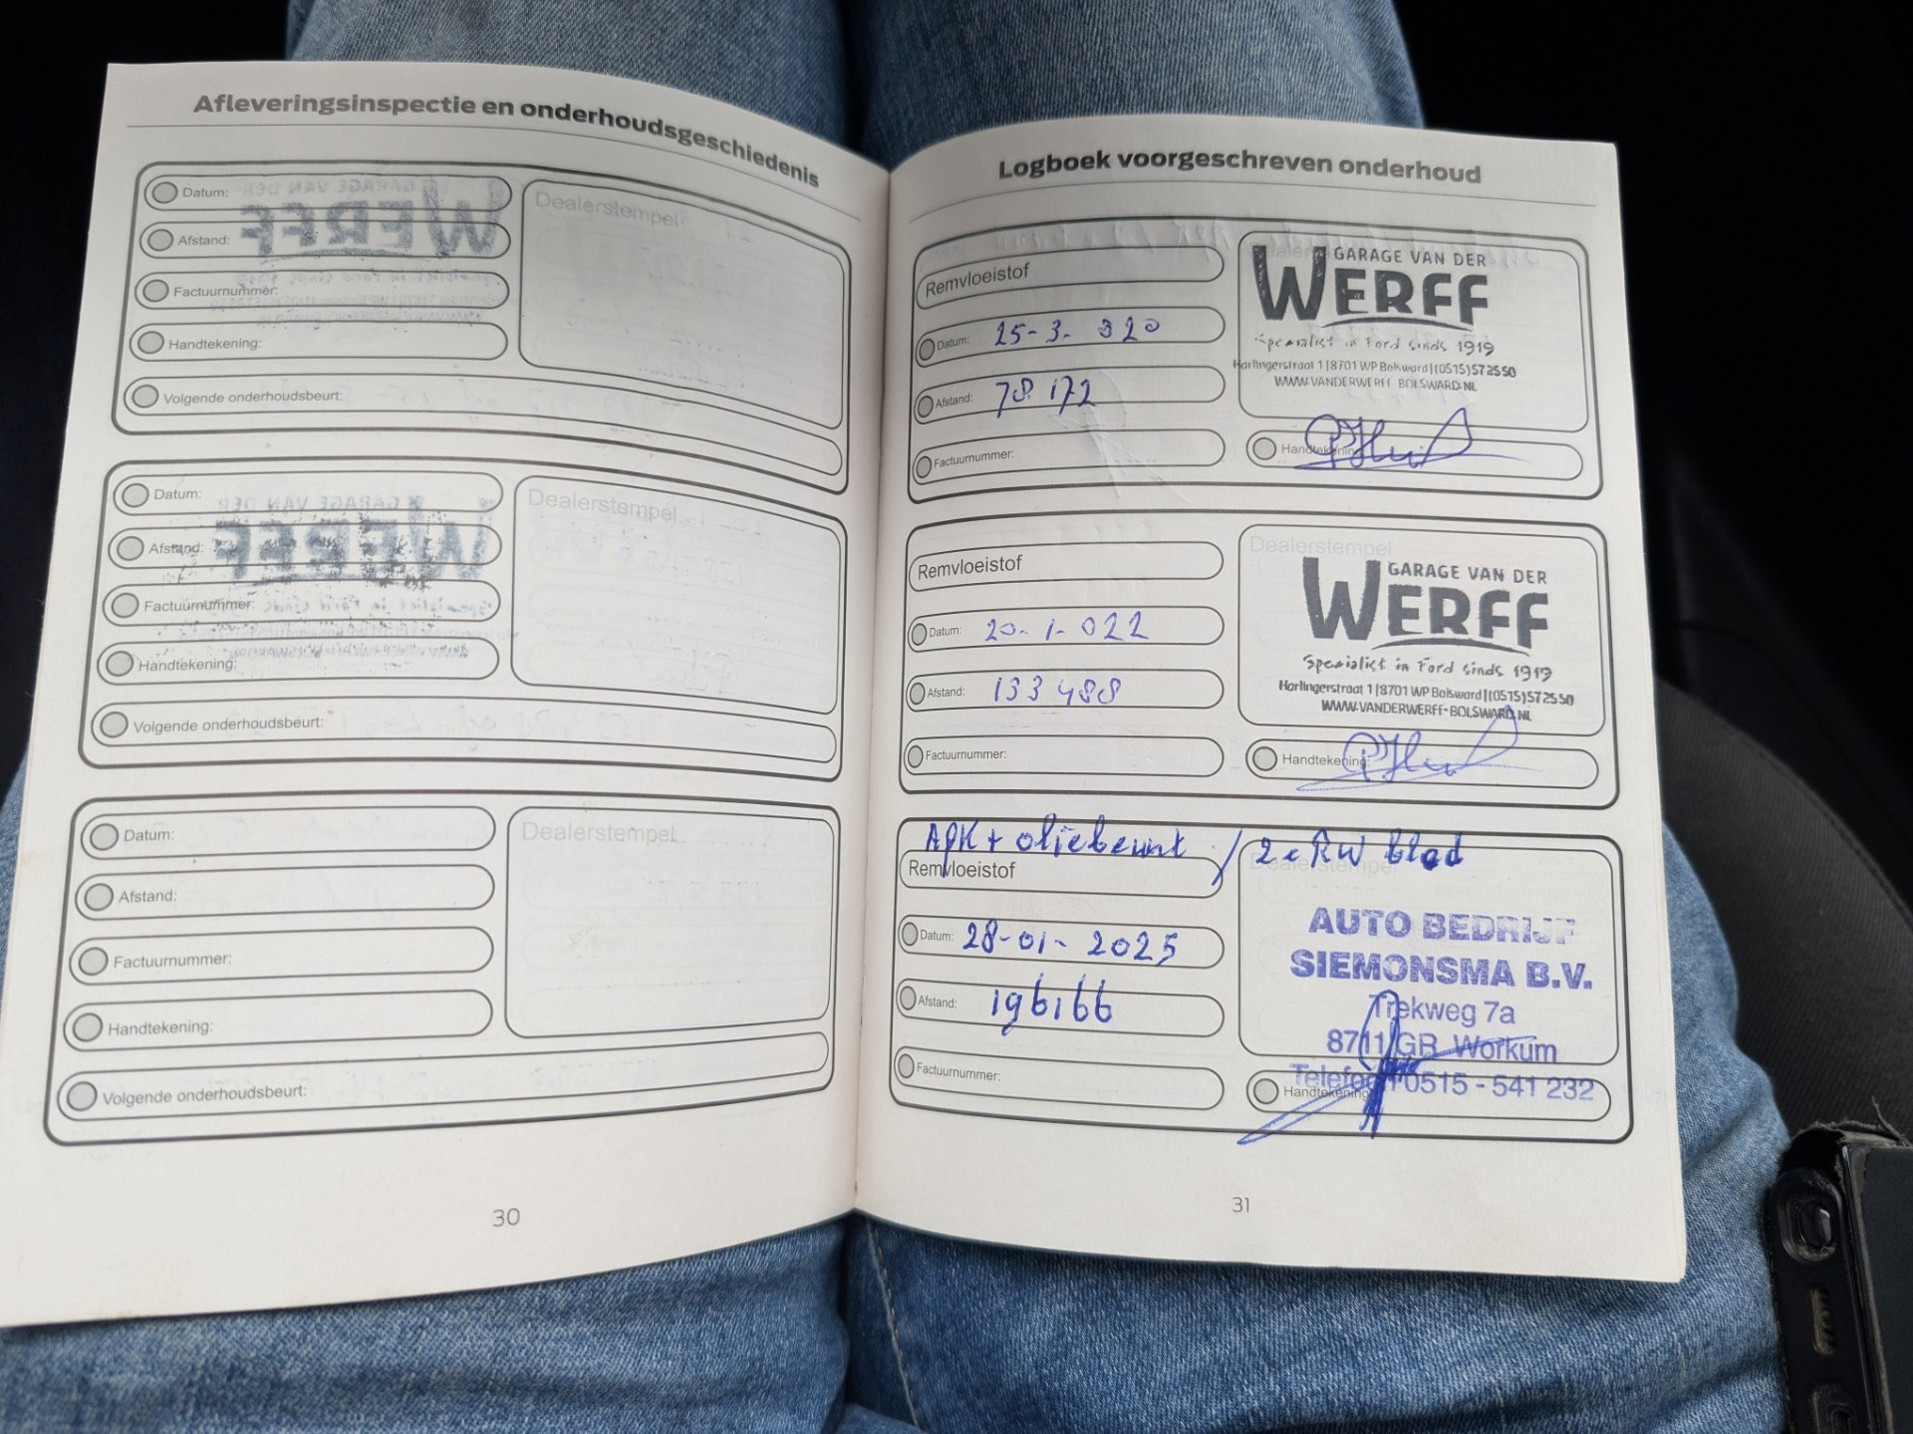 Afleveringsinspectie en onderhoudsgeschiedenis
Datum:
Afstand:
Factuurnummer:
Handtekening:
Volgende onderhoudsbeurt:
Dealerstempel
Datum:
Afstand:
Factuurnummer:
Handtekening:
Volgende onderhoudsbeurt:
Dealerstempel
Datum:
Afstand:
Factuurnummer:
Handtekening:
Volgende onderhoudsbeurt:
Dealerstempel
30
Logboek voorgeschreven onderhoud
Remvloeistof
Datum: 25-3- 020
Afstand: 78 172
Factuurnummer:
GARAGE VAN DER
WERFF
Specialist in Ford sinds 1919
Harlingerstraat 1 | 8701 WP Bolsward | (0515) 57 25 50
WWW.VANDERWERFF-BOLSWARD.NL
Handtekening:
Remvloeistof
Datum: 20-1-022
Afstand: 133 488
Factuurnummer:
Dealerstempel
GARAGE VAN DER
WERFF
Specialist in Ford sinds 1919
Harlingerstraat 1 | 8701 WP Bolsward | (0515) 57 25 50
WWW.VANDERWERFF-BOLSWARD.NL
Handtekening:
APK + oliebeurt / 2x RW blad
Remvloeistof
Datum: 28-01-2025
Afstand: 196166
Factuurnummer:
Dealerstempel
AUTO BEDRIJF
SIEMONSMA B.V.
Trekweg 7a
8711 GR Workum
Telefoon 0515 - 541 232
Handtekening:
31